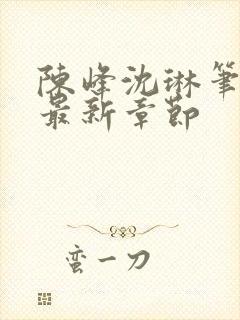 陳峰沈琳筆
最新章節
蛮一刀